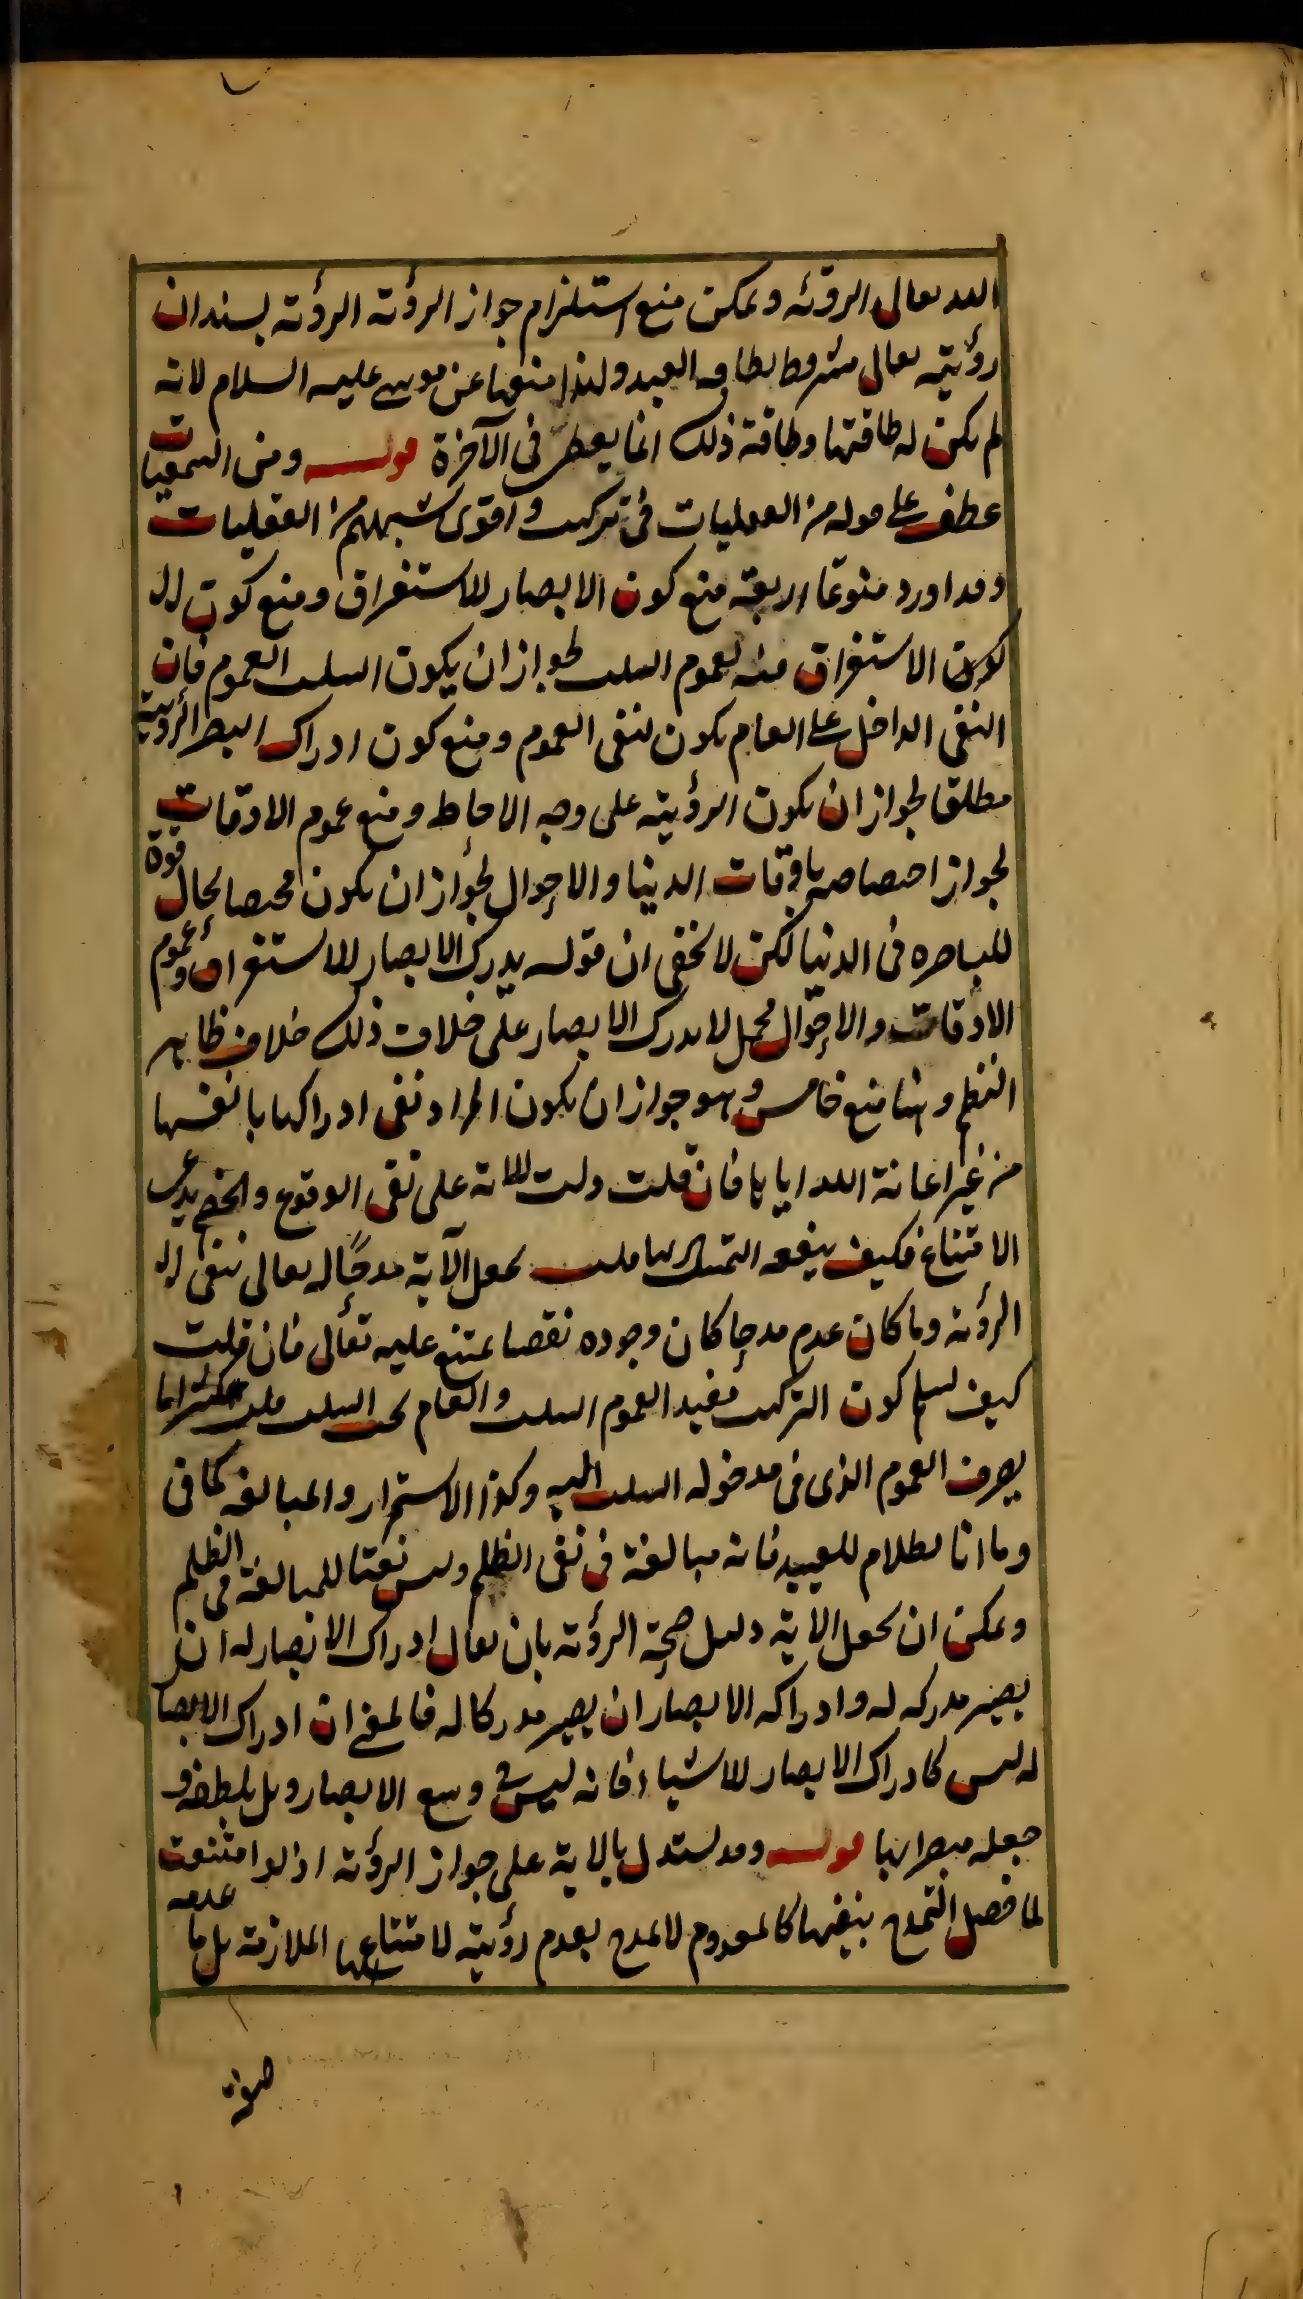 الله تعالى الرؤية ويمكن منع استلزام جواز الرؤية الرؤية بسند ان
رؤيته تعالى مشروط بطاقة العبد ولذا منعها عن موسى عليه السلام لانه
لم يكن له طاقتها وطاقة ذلك انما يعطى فى الآخرة قوله ومن السمعيات
عطف على قوله من العقليات فى تركيب واقوى شبههم من العقليات
وقد اورد منوعا اربعة منع كون الابصار للاستغراق ومنع كون
كون الاستغراق لعموم السلب لجواز ان يكون السلب العموم فان
النفى الداخل على العام يكون لنفى العموم ومنع كون ادراك البصر الرؤية
مطلقا لجواز ان يكون الرؤية على وجه الاحاطه ومنع عموم الاوقات
لجواز اختصاصه باوقات الدنيا والاحوال لجواز ان يكون مختصا بحال قوة
للباصره فى الدنيا لكن لا يخفى ان قوله يدرك الابصار للاستغراق وعموم
الاوقات والاحوال فحمل لا يدرك الابصار على خلاف ذلك خلاف ظاهر
النظم وهنا منع خامس وهو جواز ان يكون المراد نفى ادراكها بانفسها
من غير اعانة الله اياها فان قلت دلت الاية على نفى الوقوع والخصم يدعى
الامتناع فكيف ينفعه التمسك بها قلت بجعل الآية مدحًا له تعالى بنفى
الرؤية وما كان عدم مدحا كان وجوده نقصا يمتنع عليه تعالى فان قلت
كيف يسلم كون التركيب مفيد العموم السلب والعام تحت السلب قلت كثيراما
يصرف العموم الذى فى مدخوله السلب اليه وكذا الاستمرار والمبالغه كما فى
وما انا بظلام للعبيد فانه مبالغة فى نفى الظلم وليس نفيا للمبالغة فى الظلم
ويمكن ان يجعل الاية دليل صحة الرؤية بان يقال ادراك الابصار له ان
يصير مدركه له وادراكه الابصار ان يصير مدركا له فالمعنى ان ادراك الابصا
له ليس كادراك الابصار للاشياء فانه ليس فى وسع الابصار وبل بلطفه و
جعله مبصرا بها قوله وقد يستدل بالاية على جواز الرؤية اذ لو امتنعت
لما حصل التمدح بنفيها كالمعدوم لا يمدح بعدم رؤيته لامتناعها الملازمة بل ما عدمه